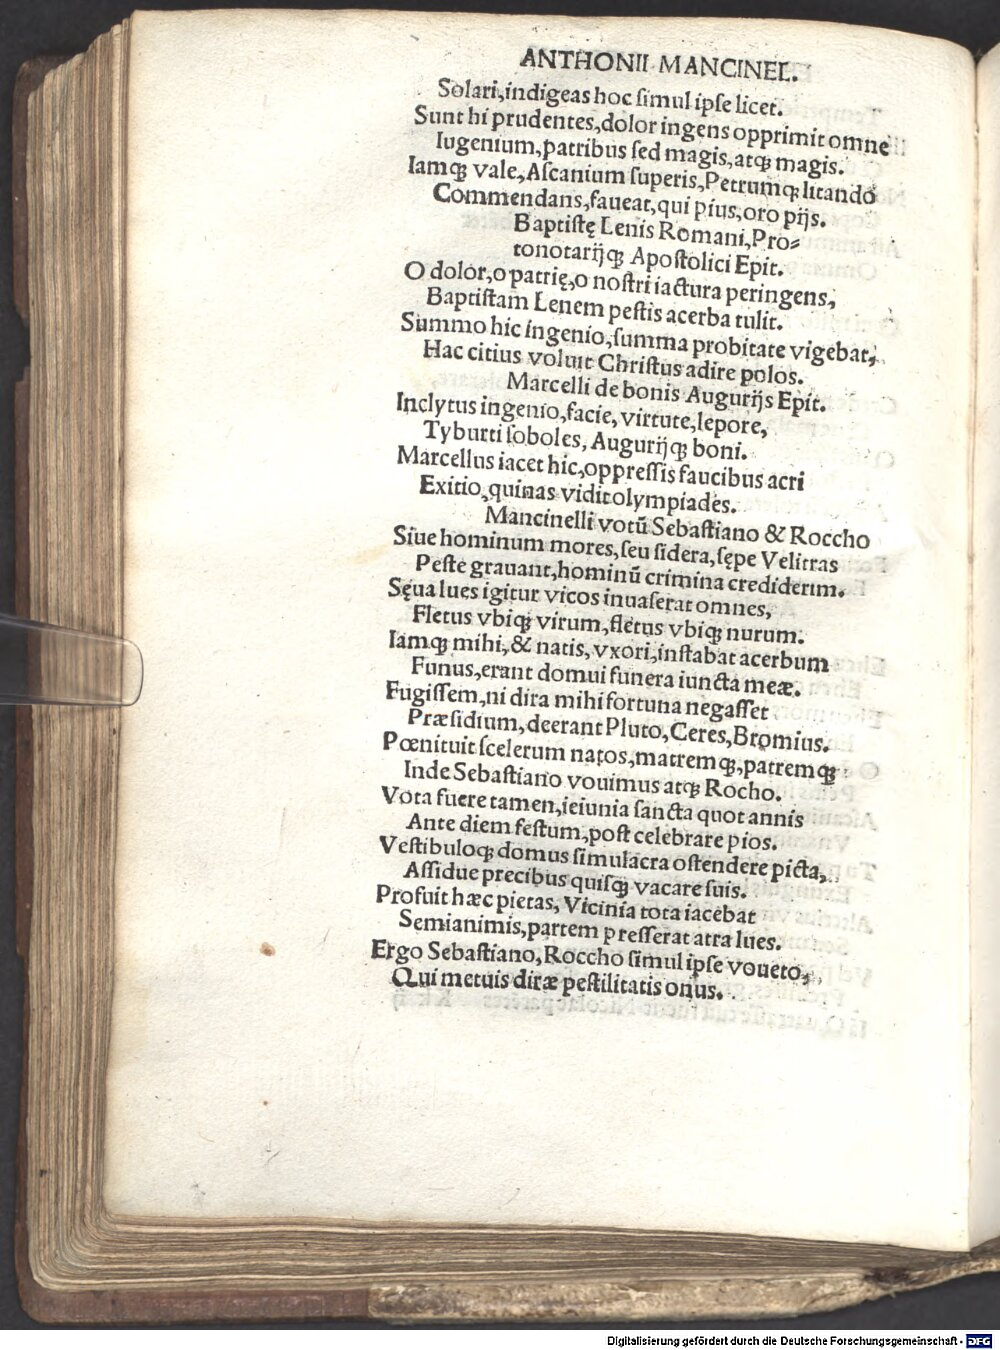 ANTHONII MANCINEL.
Solari,indigeas hoc simul ipse licet.
Sunt hi prudentes,dolor ingens opprimit omne
Iugenium,patribus sed magis,atqꝫ magis.
Iamqꝫ vale,Ascanium superis,Petrumqꝫ litando
Commendans,faueat,qui pius,oro pijs.
Baptistę Lenis Romani,Pro⸗
tonotarijqꝫ Apostolici Epit.
O dolor,o patrię,o nostri iactura peringens,
Baptistam Lenem pestis acerba tulit.
Summo hic ingenio,summa probitate vigebat,
Hac citius voluit Christus adire polos.
Marcelli de bonis Augurijs Epit.
Inclytus ingenio,facie,virtute,lepore,
Tyburti soboles, Augurijqꝫ boni.
Marcellus iacet hic,oppressis faucibus acri
Exitio,quinas vidit olympiades.
Mancinelli votū Sebastiano & Roccho
Siue hominum mores,seu sidera,sępe Velitras
Peste grauant,hominū crimina crediderim.
Sęua lues igitur vicos inuaserat omnes,
Fletus vbiqꝫ virum,fletus vbiqꝫ nurum.
Iamqꝫ mihi,& natis, vxori,instabat acerbum
Funus,erant domui funera iuncta meæ.
Fugissem,ni dira mihi fortuna negasset
Præsidium, deerant Pluto, Ceres, Bromius.
Pœnituit scelerum natos,matremqꝫ,patremqꝫ
Inde Sebastiano vouimus atqꝫ Rocho.
Vota fuere tamen,ieiunia sancta quot annis
Ante diem festum,post celebrare pios.
Vestibuloqꝫ domus simulacra ostendere picta,
Assidue precibus quisqꝫ vacare suis.
Profuit hæc pietas, Vicinia tota iacebat
Semianimis,partem presserat atra lues.
Ergo Sebastiano, Roccho simul ipse voueto,
Qui metuis diræ pestilitatis onus.
Digitalisierung gefördert durch die Deutsche Forschungsgemeinschaft - DFG